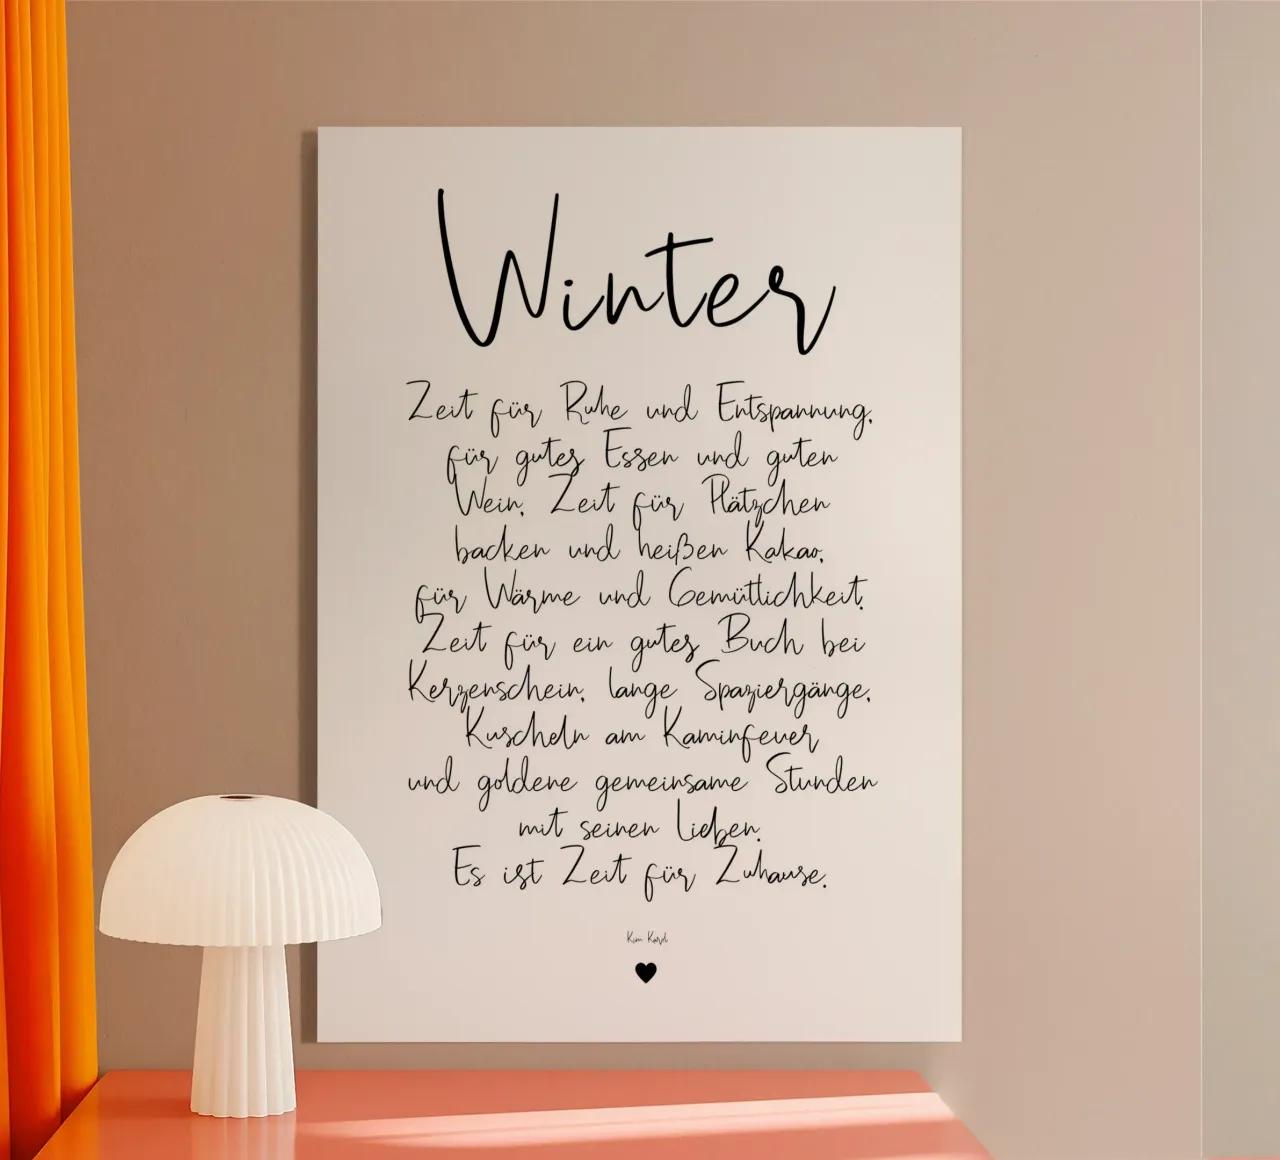 Winter
Zeit für Ruhe und Entspannung,
für gutes Essen und guten
Wein. Zeit für Plätzchen
backen und heißen Kakao,
für Wärme und Gemütlichkeit.
Zeit für ein gutes Buch bei
Kerzenschein, lange Spaziergänge,
Kuscheln am Kaminfeuer
und goldene gemeinsame Stunden
mit seinen Lieben.
Es ist Zeit für Zuhause.
Kim